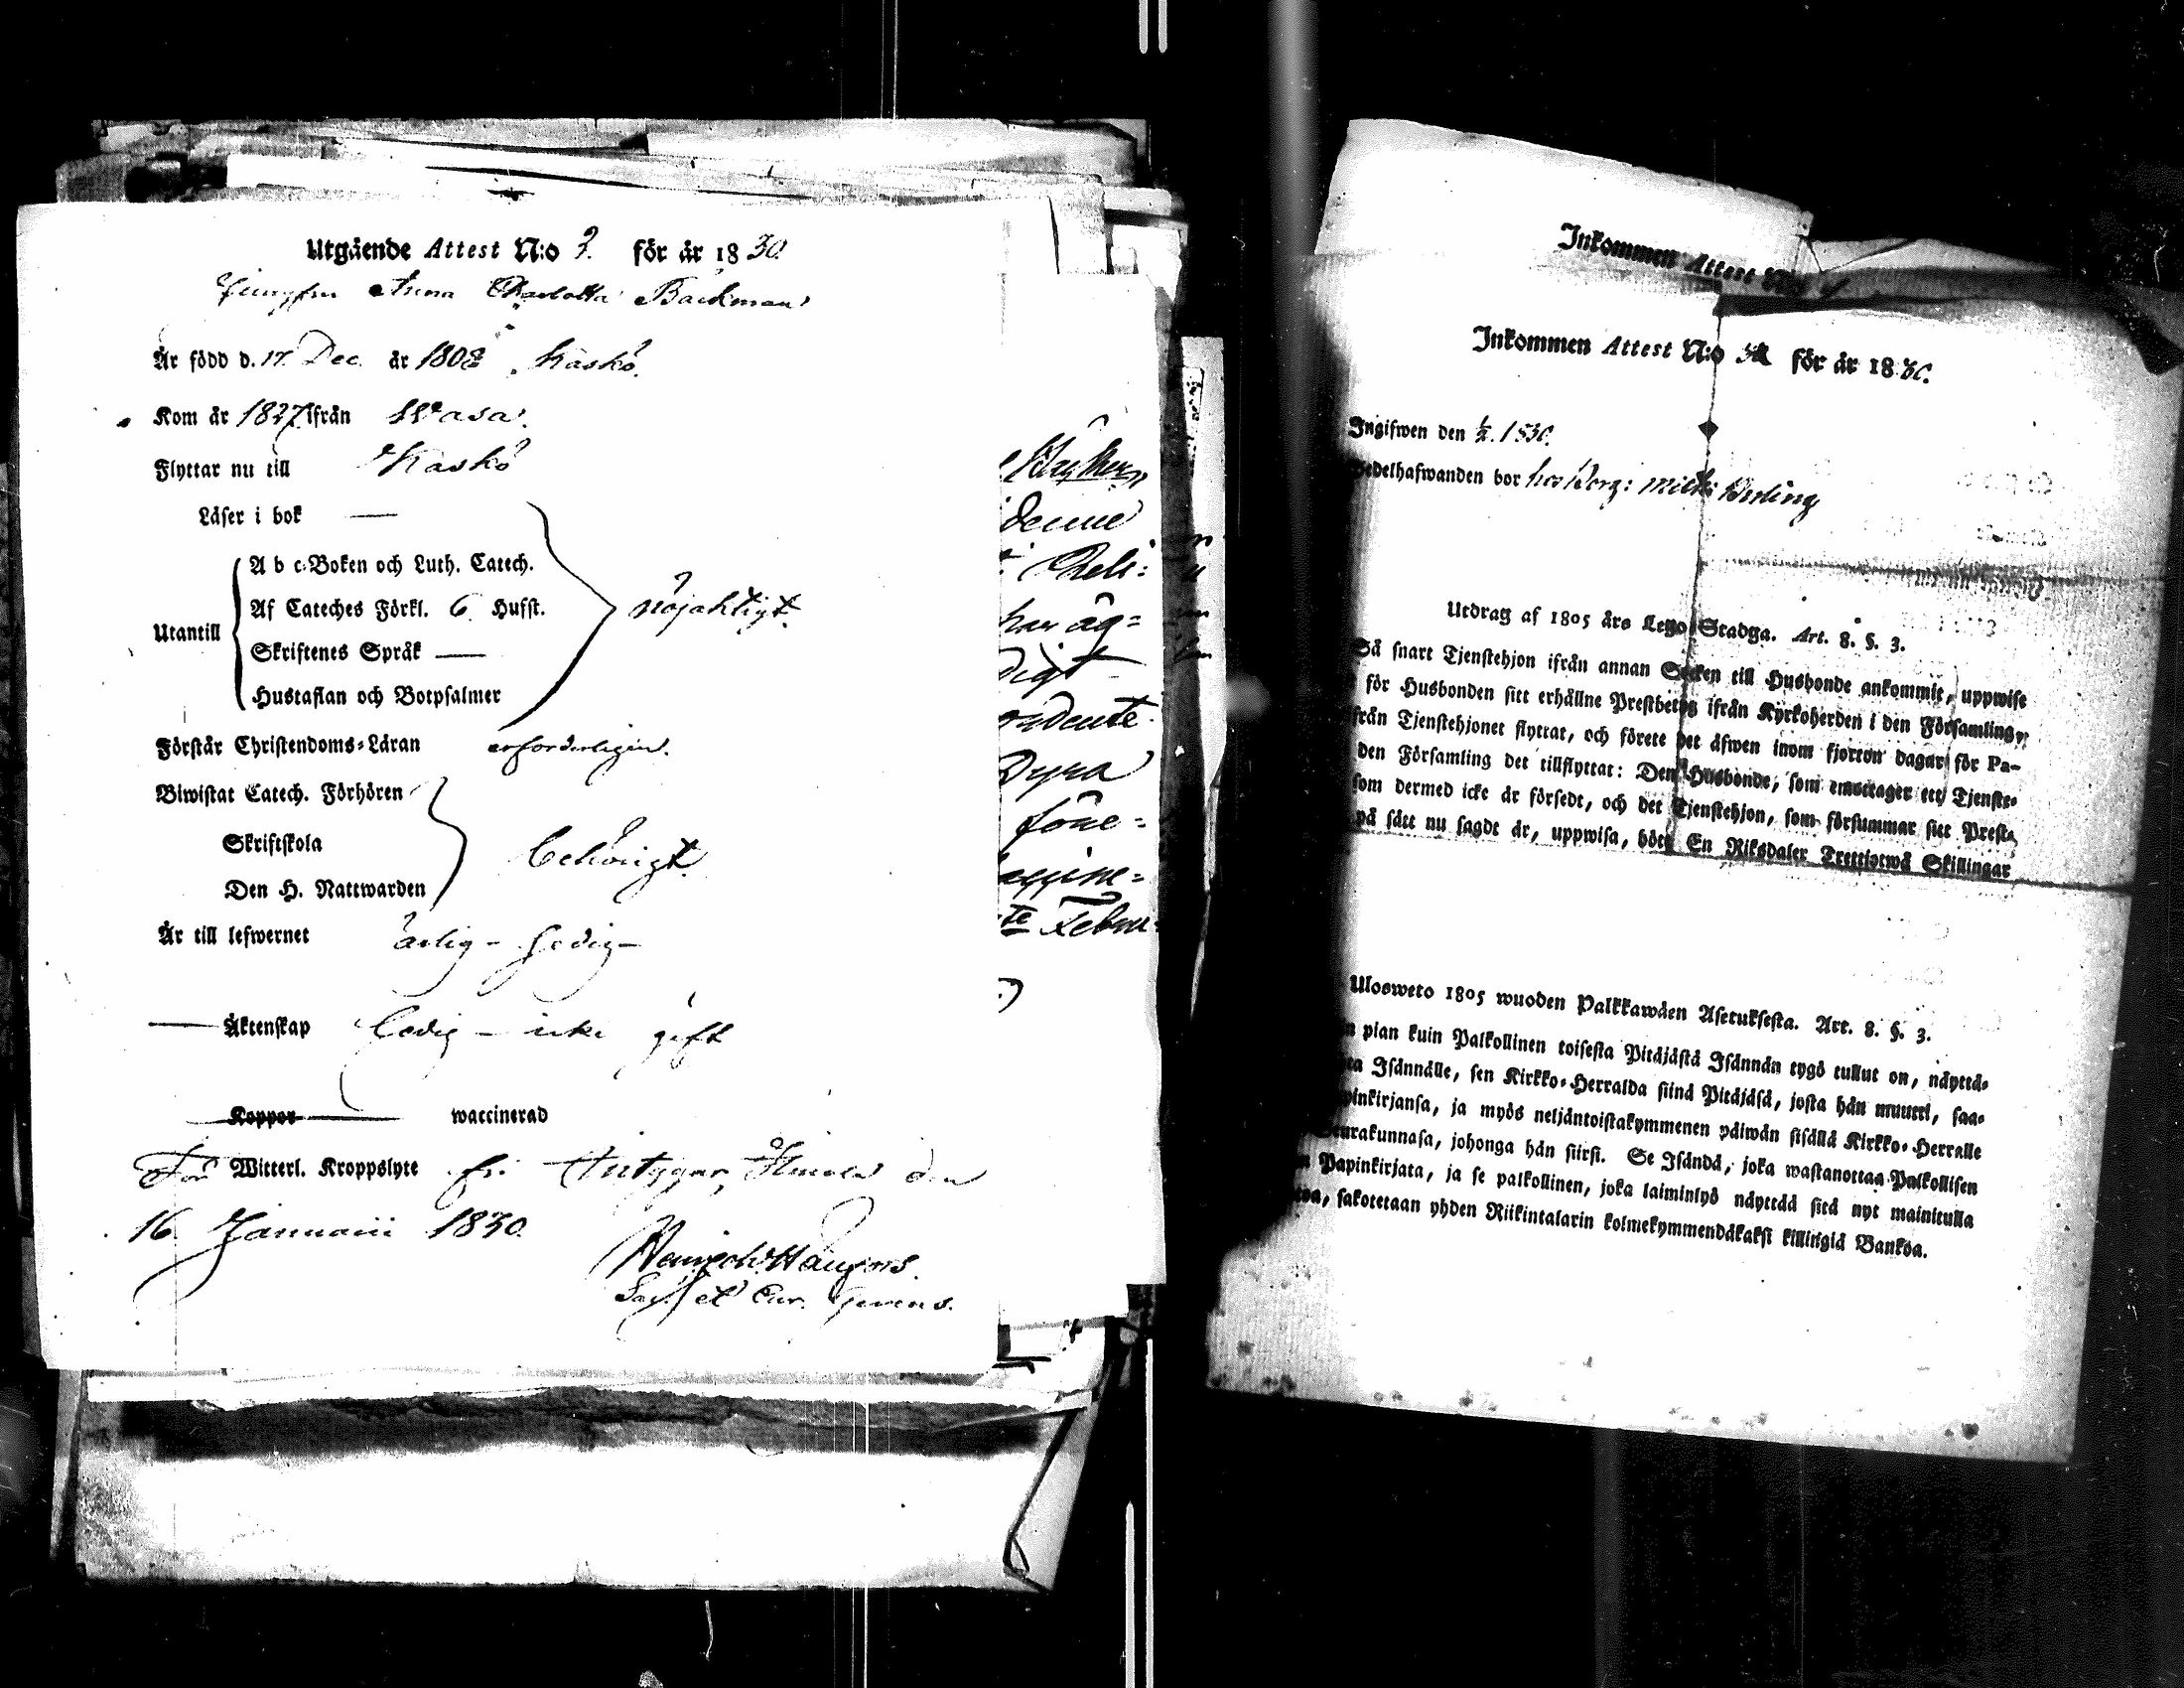 Utgående Attest N:o 2. för år 1830.
Jungfru Anna Charlotta Backman
Är född d. 17. Dec. år 1808 Kaskö.
Kom år 1827 ifrån Wasa.
Flyttar nu till Kaskö
Läser i bok —
Utantill
A b c-Boken och Luth. Catech.
Af Cateches Förkl. 6 Hufst.
Skriftenes Språk —
Hustaflan och Botpsalmer
nöjaktigt.
Förstår Christendoms-Läran erforderligen.
Biwistat Catech. Förhören
Skriftskola
Den H. Nattwarden
behörigt.
Är till lefwernet ärlig - sedig -
— Äktenskap ledig - icke gift
Koppor waccinerad
Från Witterl. Kroppslyte fri
16 Januarii 1830.
denne
har äg=
digt
Dyra
te Febru=
Inkommen Attest N:o
Inkommen Attest N:o för år 1830.
Ingifwen den ½. 1830.
Sedelhafwanden bor hos
Utdrag af 1805 års Lego-Stadga. Art. 8. §. 3.
Så snart Tjenstehjon ifrån annan Socken till Husbonde ankommit, uppwise
för Husbonden sitt erhållne Prestbetyg ifrån Kyrkoherden i den Församling,
från Tjenstehjonet flyttat, och förete det äfwen inom fjorton dagar för Pa-
den Församling det tillflyttat: Den Husbonde, som emottager ett Tjenste-
som dermed icke är försedt, och det Tjenstehjon, som försummar sitt Prest-
på sätt nu sagdt är, uppwisa, böte En Riksdaler Trettiotwå Skillingar
Ulosweto 1805 wuoden Palkkawäen Asetuksesta. Art. 8. §. 3.
n pian kuin Palkollinen toisesta Pitäjästä Isännän tygö tullut on, näyttä-
Isännälle, sen Kirkko-Herralda siinä Pitäjäsä, josta hän muutti, saa-
pinkirjansa, ja myös neljäntoistakymmenen päiwän sisällä Kirkko-Herralle
eurakunnasa, johonga hän siirsi. Se Isändä, joka wastanottaa Palkollisen
Papinkirjata, ja se palkollinen, joka laiminlyö näyttää sitä nyt mainitulla
, sakotetaan yhden Riikintalarin kolmekymmendäkaksi killingiä Bankoa.